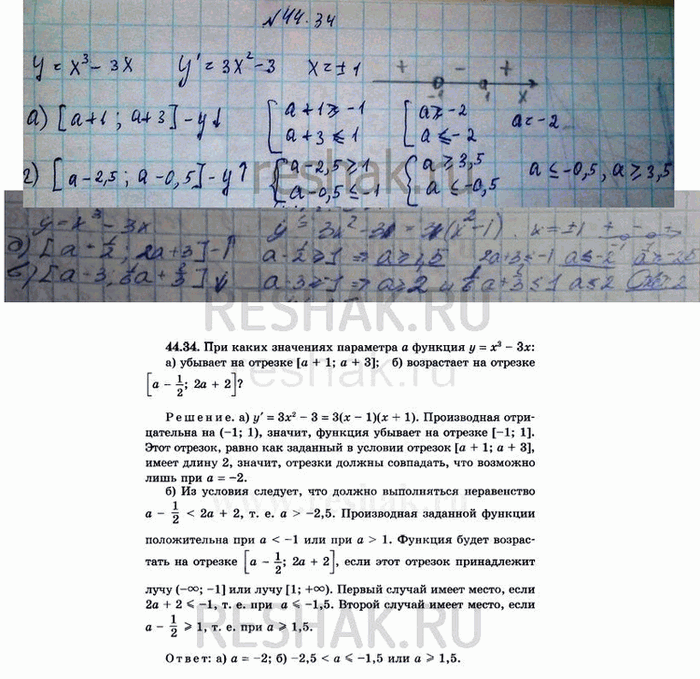 №44.34
y = x³ - 3x y' = 3x² - 3 x = ±1 + - + -1 1 x
а) [a+1; a+3] - y↓ { a+1 ≥ -1 { a ≥ -2 a = -2
a+3 ≤ 1 a ≤ -2
г) [a-2,5; a-0,5] - y↑ { a-2,5 ≥ 1 { a ≥ 3,5 a ≤ -0,5, a ≥ 3,5
a-0,5 ≤ -1 a ≤ -0,5
reshak.ru
y = x³ - 3x x = ±1
RESHAK.RU
44.34. При каких значениях параметра a функция y = x³ – 3x:
а) убывает на отрезке [a + 1; a + 3]; б) возрастает на отрезке
[a – 1/2; 2a + 2]?
Решение. а) y′ = 3x² – 3 = 3(x – 1)(x + 1). Производная отри-
цательна на (–1; 1), значит, функция убывает на отрезке [–1; 1].
Этот отрезок, равно как заданный в условии отрезок [a + 1; a + 3],
имеет длину 2, значит, отрезки должны совпадать, что возможно
лишь при a = –2.
б) Из условия следует, что должно выполняться неравенство
a – 1/2 < 2a + 2, т. е. a > –2,5. Производная заданной функции
положительна при a < –1 или при a > 1. Функция будет возрас-
тать на отрезке [a – 1/2; 2a + 2], если этот отрезок принадлежит
лучу (–∞; –1] или лучу [1; +∞). Первый случай имеет место, если
2a + 2 ⩽ –1, т. е. при a ⩽ –1,5. Второй случай имеет место, если
a – 1/2 ⩾ 1, т. е. при a ⩾ 1,5.
RESHAK.RU
Ответ: а) a = –2; б) –2,5 < a ⩽ –1,5 или a ⩾ 1,5.